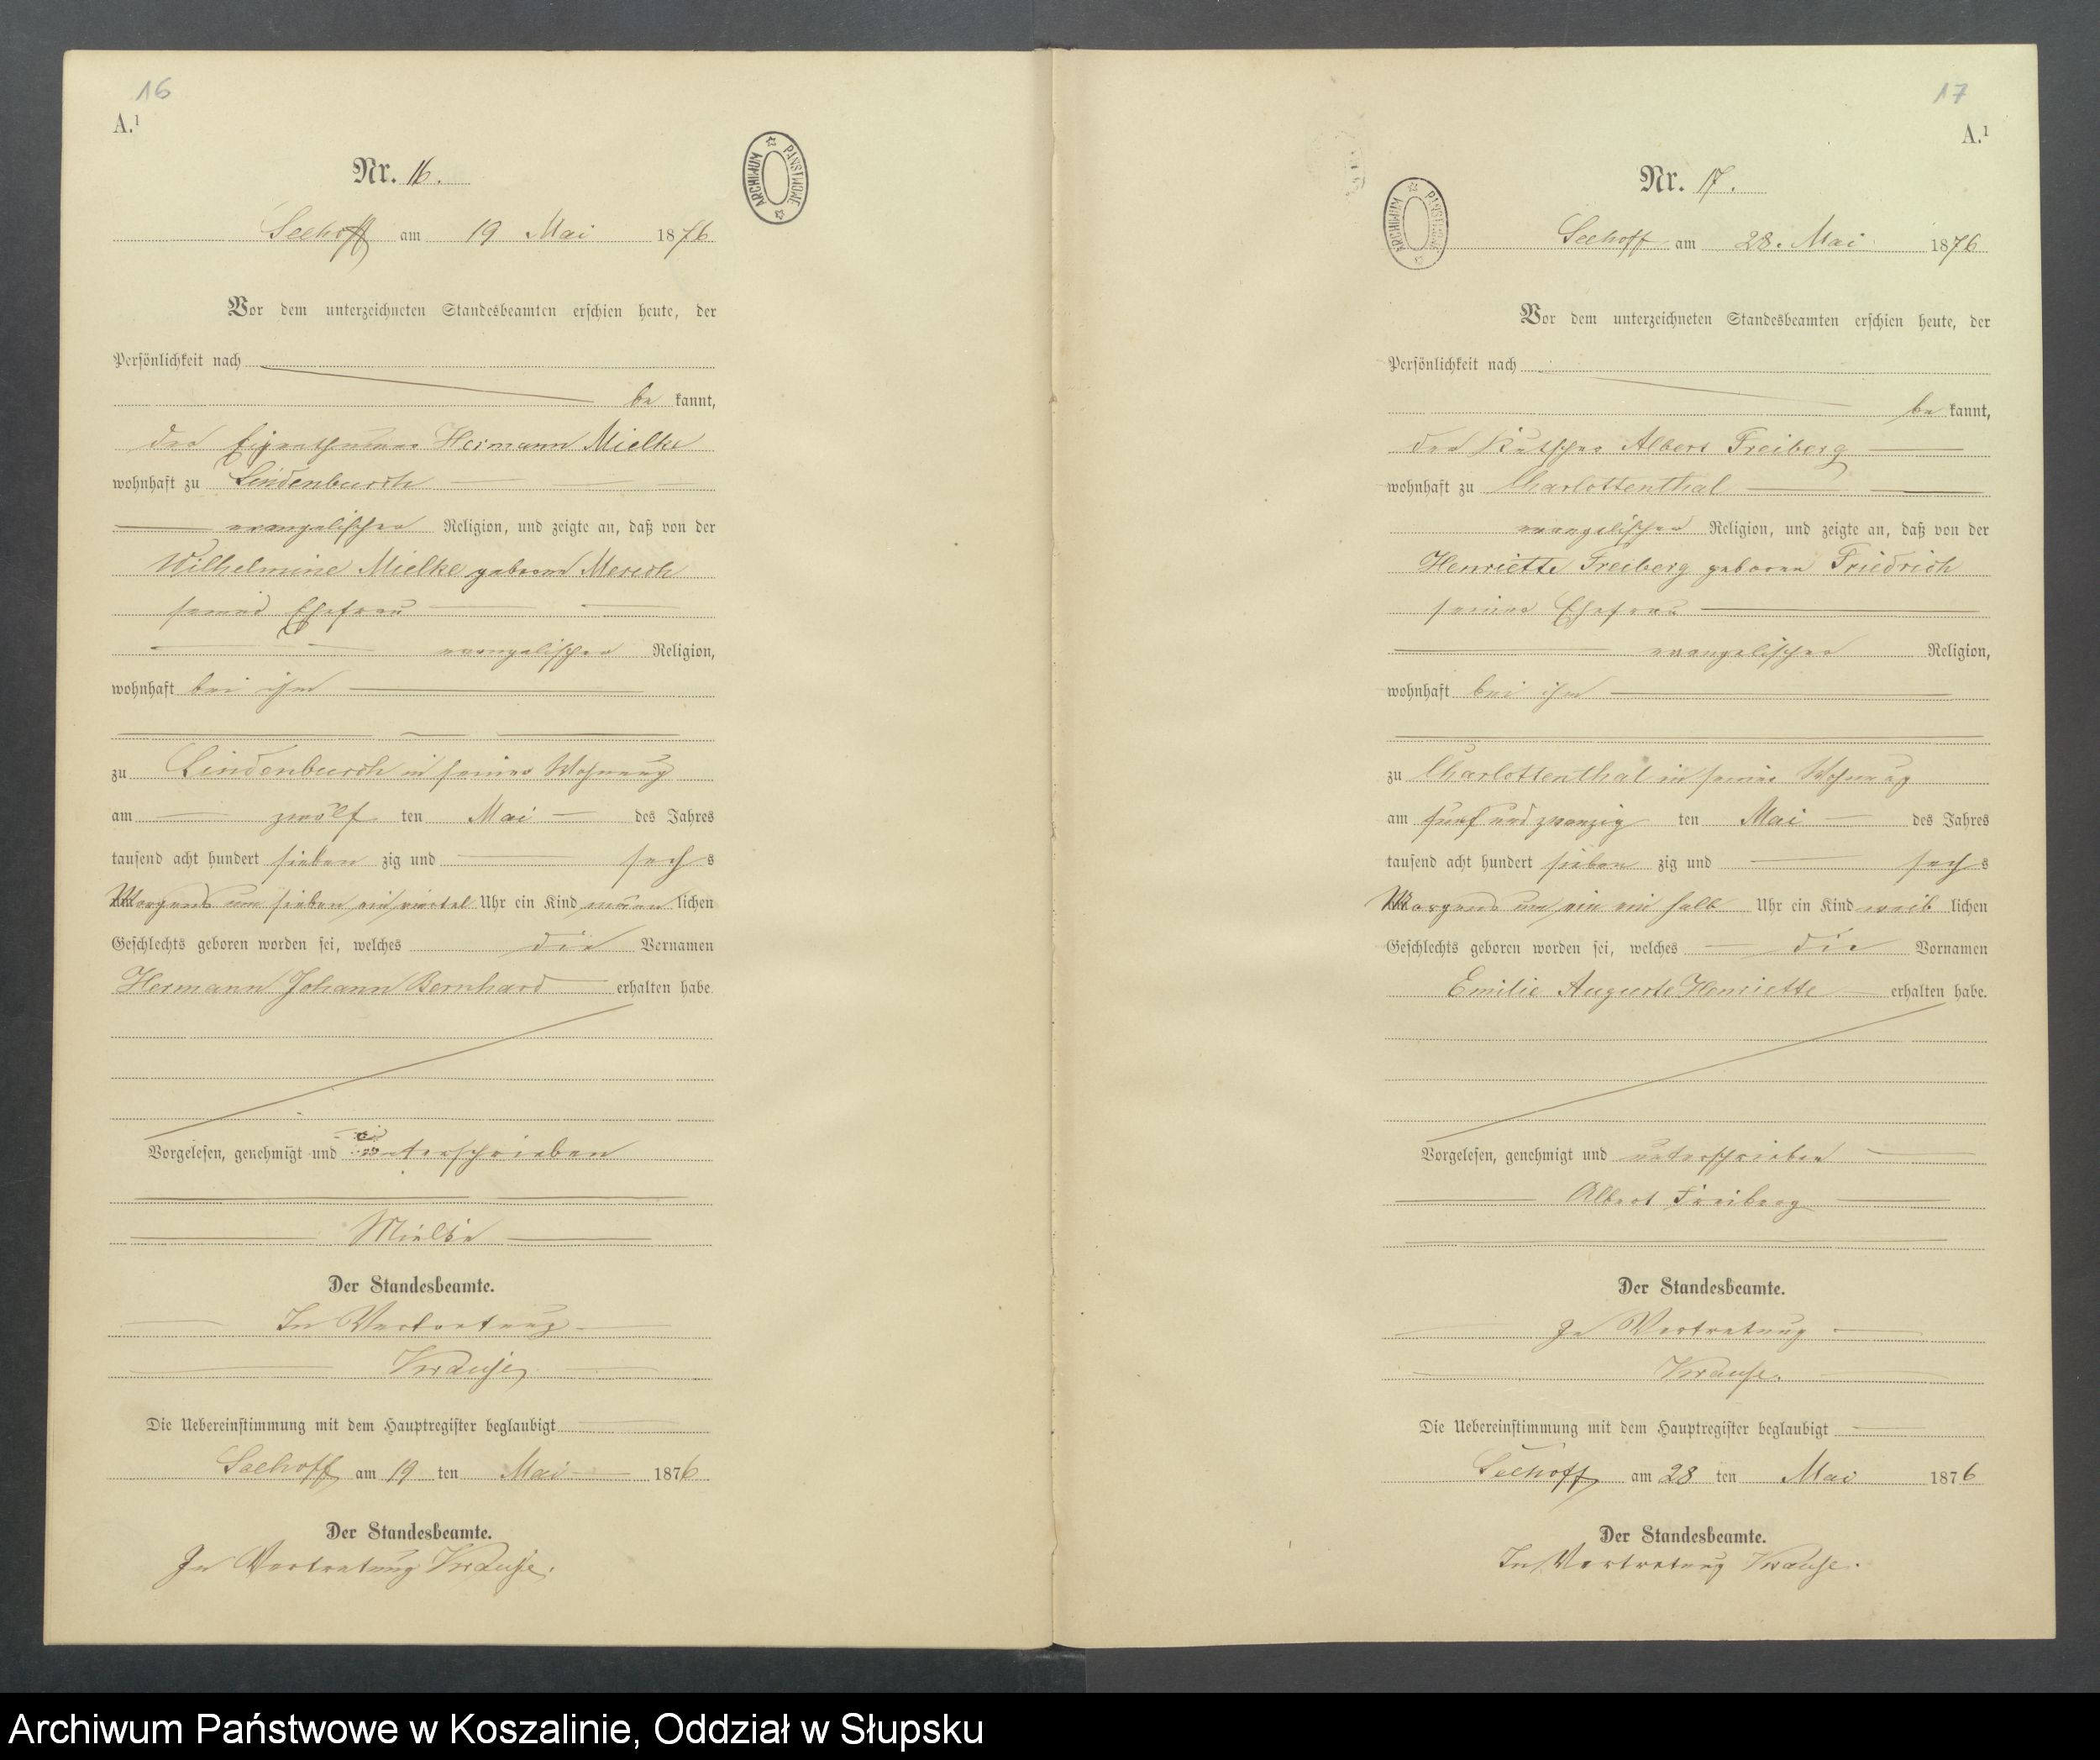 16
A.¹
Nr. 16.
ARCHIWUM PAŃSTWOWE
Seehoff am 19 Mai 1876
Vor dem unterzeichneten Standesbeamten erschien heute, der
Persönlichkeit nach
be kannt,
der Eigenthümer Hermann Mielke
wohnhaft zu Lindenbusch
evangelischer Religion, und zeigte an, daß von der
Wilhelmine Mielke geborne
seiner Ehefrau
evangelischer Religion,
wohnhaft bei ihm
zu Lindenbusch in seiner Wohnung
am zwölf ten Mai des Jahres
tausend acht hundert sieben zig und sech s
Morgens um sieben ein viertel Uhr ein Kind männ lichen
Geschlechts geboren worden sei, welches die Vornamen
Hermann Johann Bernhard erhalten habe.
Vorgelesen, genehmigt und unterschrieben
Mielke
Der Standesbeamte.
In Vertretung
Krause
Die Uebereinstimmung mit dem Hauptregister beglaubigt
Seehoff am 19 ten Mai 1876
Der Standesbeamte.
In Vertretung Krause.
17
A.¹
Nr. 17.
ARCHIWUM PAŃSTWOWE
Seehoff am 28. Mai 1876
Vor dem unterzeichneten Standesbeamten erschien heute, der
Persönlichkeit nach
be kannt,
der Kutscher Albert Freiberg
wohnhaft zu Charlottenthal
evangelischer Religion, und zeigte an, daß von der
Henriette Freiberg geboren Friedrich
seiner Ehefrau
evangelischer Religion,
wohnhaft bei ihm
zu Charlottenthal in seiner Wohnung
am fünf und zwanzig ten Mai des Jahres
tausend acht hundert sieben zig und sech s
Morgens um ein ein halb Uhr ein Kind weib lichen
Geschlechts geboren worden sei, welches die Vornamen
Emilie Auguste Henriette erhalten habe.
Vorgelesen, genehmigt und unterschrieben
Albert Freiberg
Der Standesbeamte.
In Vertretung
Krause.
Die Uebereinstimmung mit dem Hauptregister beglaubigt
Seehoff am 28 ten Mai 1876
Der Standesbeamte.
In Vertretung Krause.
Archiwum Państwowe w Koszalinie, Oddział w Słupsku